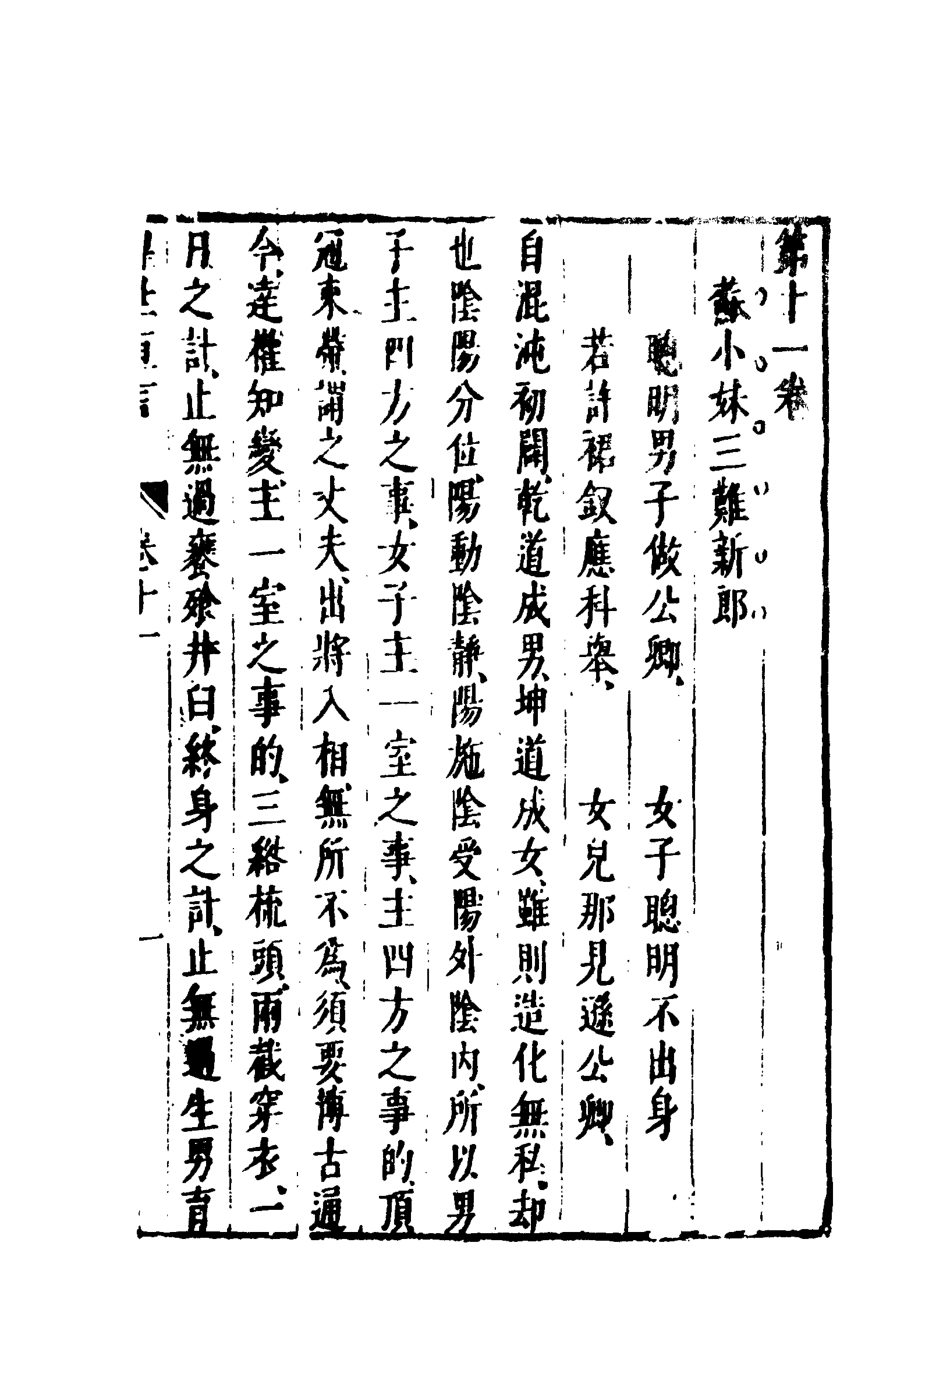 第十一卷
蘇小妹三難新郎
聰明男子做公卿、女子聰明不出身
若許裙釵應科舉、女兒那見遜公卿、
自混沌初闢、乾道成男、坤道成女、雖則造化無私、却
也陰陽分位、陽動陰靜、陽施陰受、陽外陰内、所以男
子主四方之事、女子主一室之事、主四方之事的、頂
冠束帶、謂之丈夫、出將入相、無所不為、須要博古通
今、達權知變、主一室之事的、三綹梳頭、兩截穿衣、一
日之計、止無過饔飱井臼、終身之計、止無過生男育
醒世恒言 卷十一 一